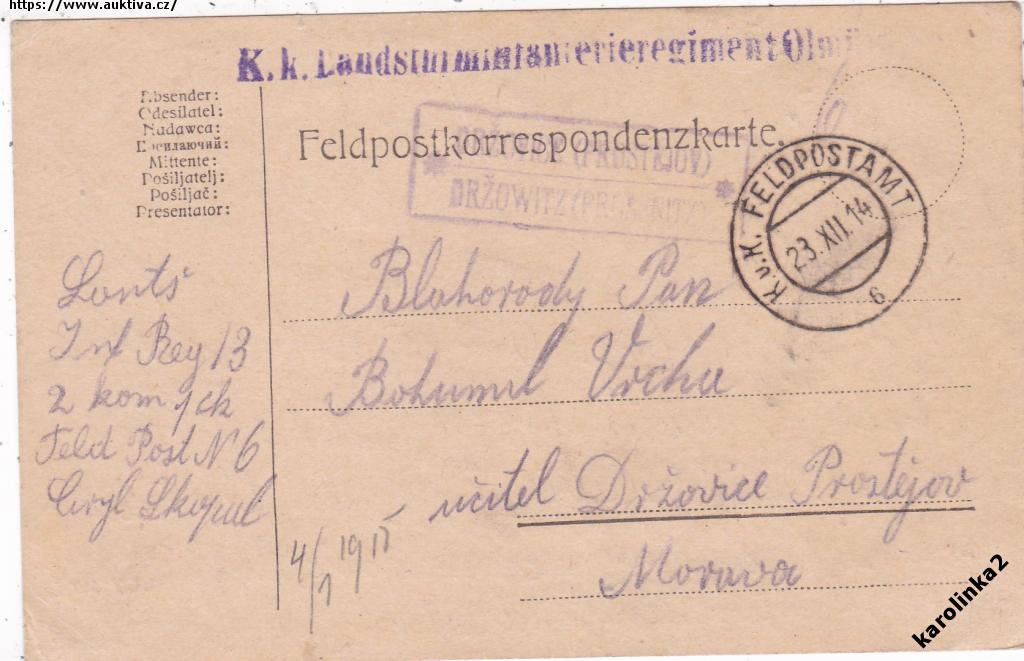 https://www.auktiva.cz/
K.k. Landsturminfanterieregiment
Absender:
Odesílatel:
Nadawca:
Посилаючий:
Mittente:
Pošiljatelj:
Pošiljač:
Presentator:
Feldpostkorrespondenzkarte.
(PROSTĚJOV)
DRŽOWITZ
K.u.K. FELDPOSTAMT
23.XII.14
6
Inf Reg 13
2 kom
Feld Post N 6
Blahorody Pan
Bohumil Vrcha
učitel Držovice Prostějov
Morava
4/1 1915
karolinka2